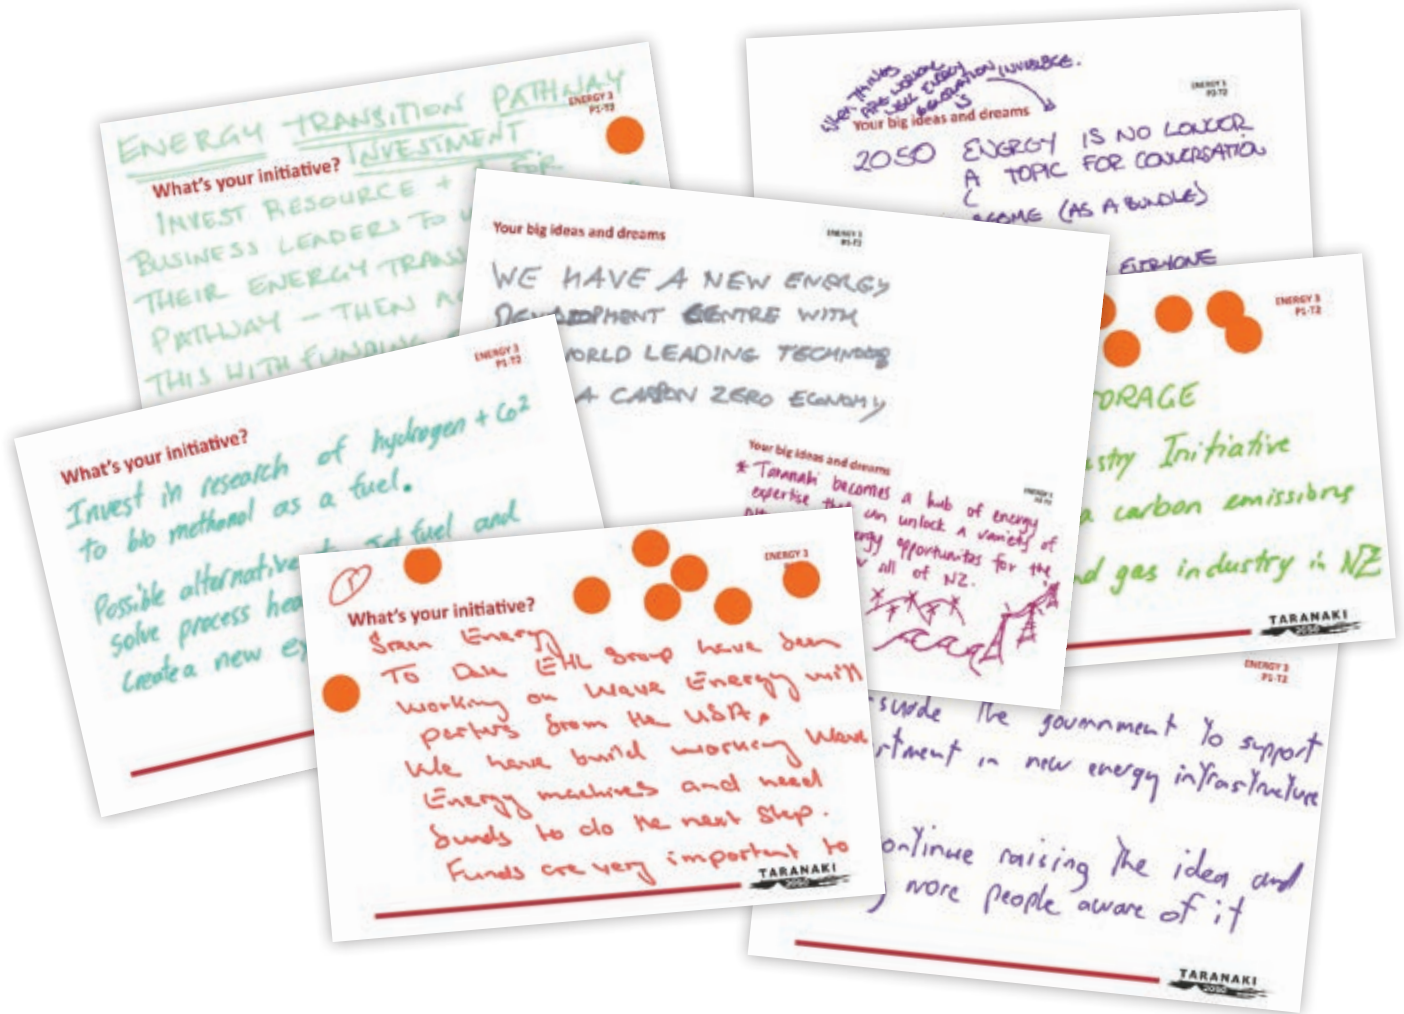 ENERGY TRANSITION PATHWAY
INVESTMENT
ENERGY 3
P1-T2
What's your initiative?
INVEST RESOURCE + FOR
BUSINESS LEADERS TO
THEIR ENERGY
PATHWAY - THEN
THIS WITH FUNDING
THINGS
ARE WORKING
WELL ENERGY
GENERATION IS INVISIBLE.
Your big ideas and dreams
2050 ENERGY IS NO LONGER
A TOPIC FOR CONVERSATION
(AS A BUNDLE)
EVERYONE
Your big ideas and dreams
WE HAVE A NEW ENERGY
DEVELOPMENT CENTRE WITH
WORLD LEADING
A CARBON ZERO ECONOMY
ENERGY 3
P1-T2
ORAGE
stry Initiative
a carbon emissions
nd gas industry in NZ
TARANAKI
2050
ENERGY 3
P1-T2
What's your initiative?
Invest in research of hydrogen + Co2
to bio methanol as a fuel.
Possible alternative to Jet fuel and
solve process hea
create a new ex
Your big ideas and dreams
* Taranaki becomes a hub of energy
expertise that can unlock a variety of
ergy opportunites for the
all of NZ.
ENERGY 3
What's your initiative?
Energy
To Date EHL Group have been
working on Wave Energy with
from the USA.
We have build working Wave
Energy machines and need
funds to do the next step.
Funds are very important to
TARANAKI
2050
ENERGY 3
P1-T2
suade the government to support
rtment in new energy infrastructure
ontinue raising the idea and
more people aware of it
TARANAKI
2050